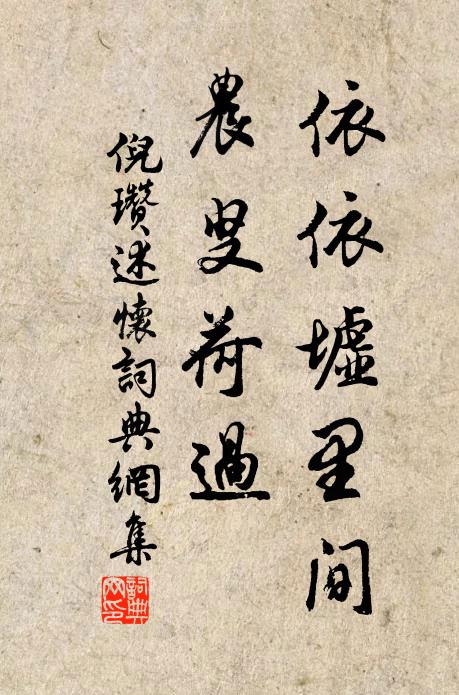 依依墟里間
農叟荷過
倪瓚述懷詞典網集
詞典網印